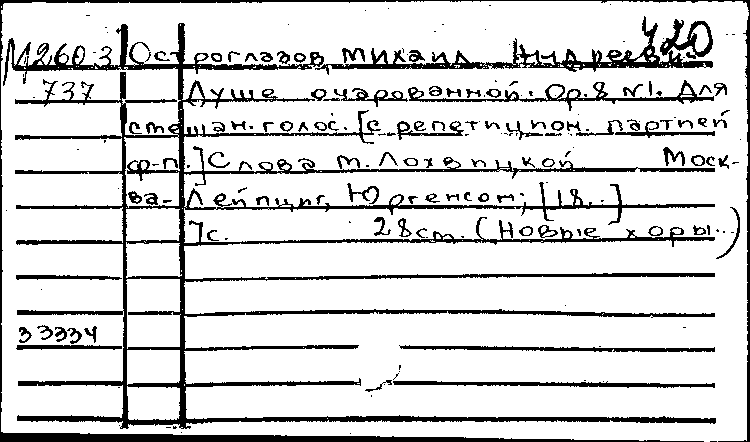 420
М260-3 Остроглазов, Михаил Андреевич.
737 Душе очарованной. Op. 8, N1. Для
смешан. голос. [с репетицион. партией
ф-п.] Слова М. Лохвицкой Моск-
ва- Лейпциг, Юргенсон; [18..]
7с. 28cm. (Новые хоры..)
33334